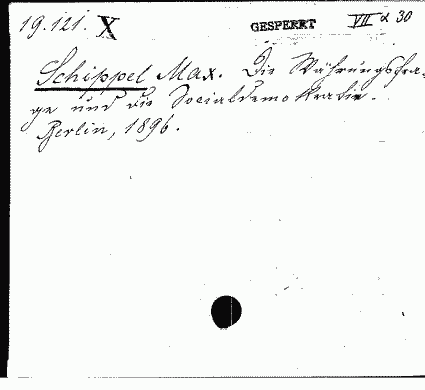 19.121. X GESPERRT VII α 30
Schippel Max. Die Währungsfra-
ge und die Socialdemokratie.
Berlin, 1896.